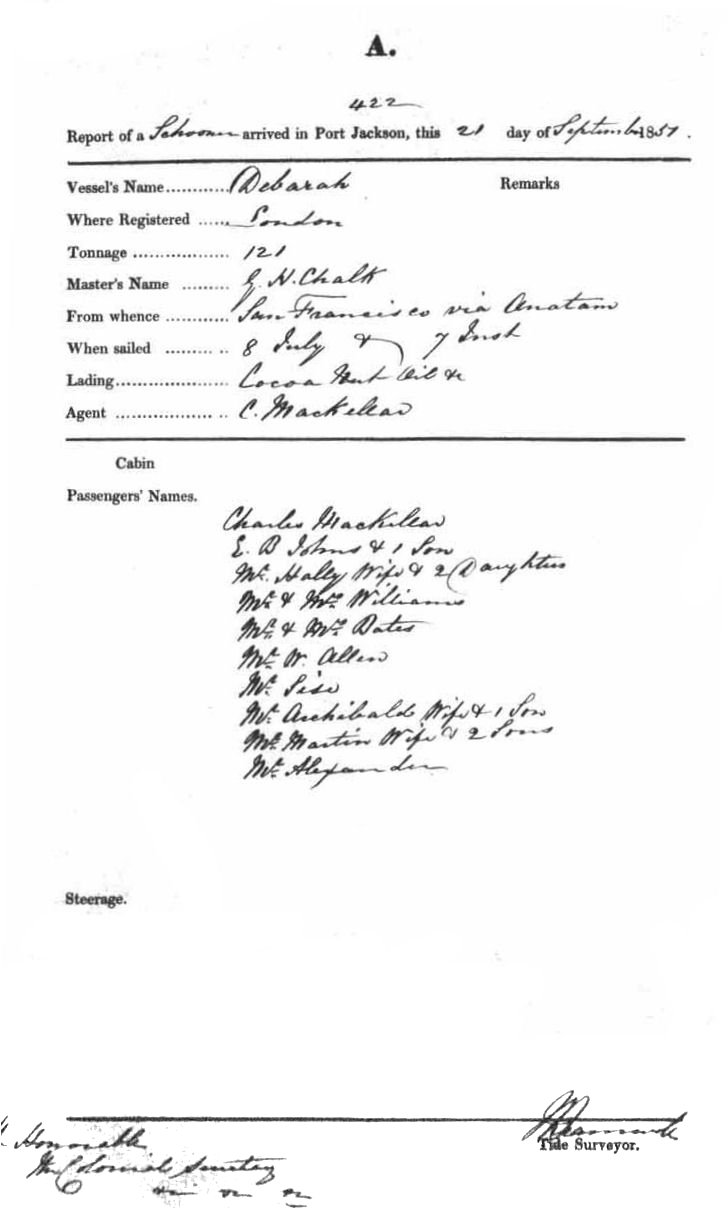 A.
422
Report of a Schooner arrived in Port Jackson, this 21 day of September 1851.
Vessel's Name............ Debarah Remarks
Where Registered ...... London
Tonnage .................. 121
Master's Name ......... G. N. Chalk
From whence ............ San Francisco via Anatam
When sailed ........... 8 July & 7 Inst
Lading..................... Cocoa Nut Oil &c
Agent .................... C. Mackellar
Cabin
Passengers' Names.
Charles Mackellar
E. B Johns & 1 Son
Mr. Hally Wife & 2 Daughters
Mr. & Mrs. Williams
Mr. & Mrs. Bates
Mr. W. Allen
Mr. Sise
Mr. Archibald Wife & 1 Son
Mr. Martin Wife & 2 Sons
Mr. Alexander
Steerage.
Tide Surveyor.
Honorable
The Colonial Secretary